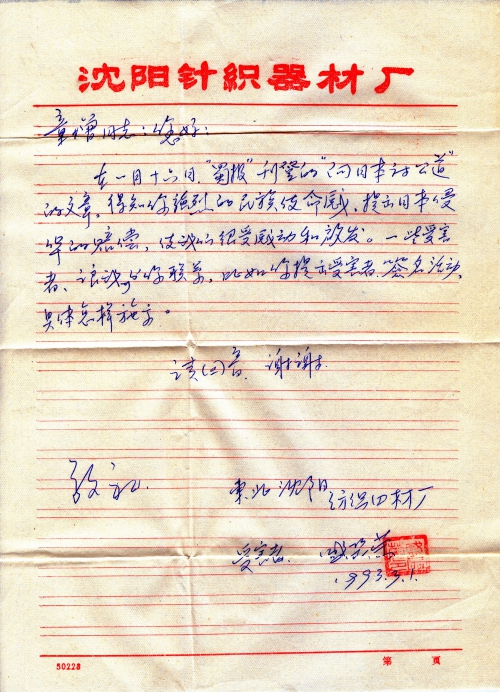 沈阳针织器材厂
童增同志:您好:
在一月十六日"蜀报"刊登的"向日本讨公道"
的文章,得知你强烈的民族使命感,提出日本侵
华的赔偿,使我们很受感动和放发。一些受害
者、让我与你联系,比如你提出受害者签名活动,
具体怎样施去。
请(二)音、谢谢.
致礼.
东北沈阳
纺织四材厂
受害者
1993.3.1.
50228
第 页